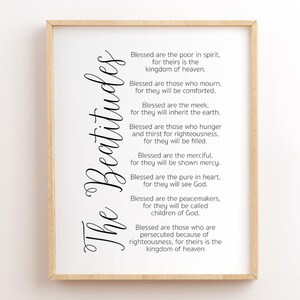 The Beatitudes
Blessed are the poor in spirit,
for theirs is the
kingdom of heaven.
Blessed are those who mourn,
for they will be comforted.
Blessed are the meek,
for they will inherit the earth.
Blessed are those who hunger
and thirst for righteousness,
for they will be filled.
Blessed are the merciful,
for they will be shown mercy.
Blessed are the pure in heart,
for they will see God.
Blessed are the peacemakers,
for they will be called
children of God.
Blessed are those who are
persecuted because of
righteousness, for theirs is the
kingdom of heaven